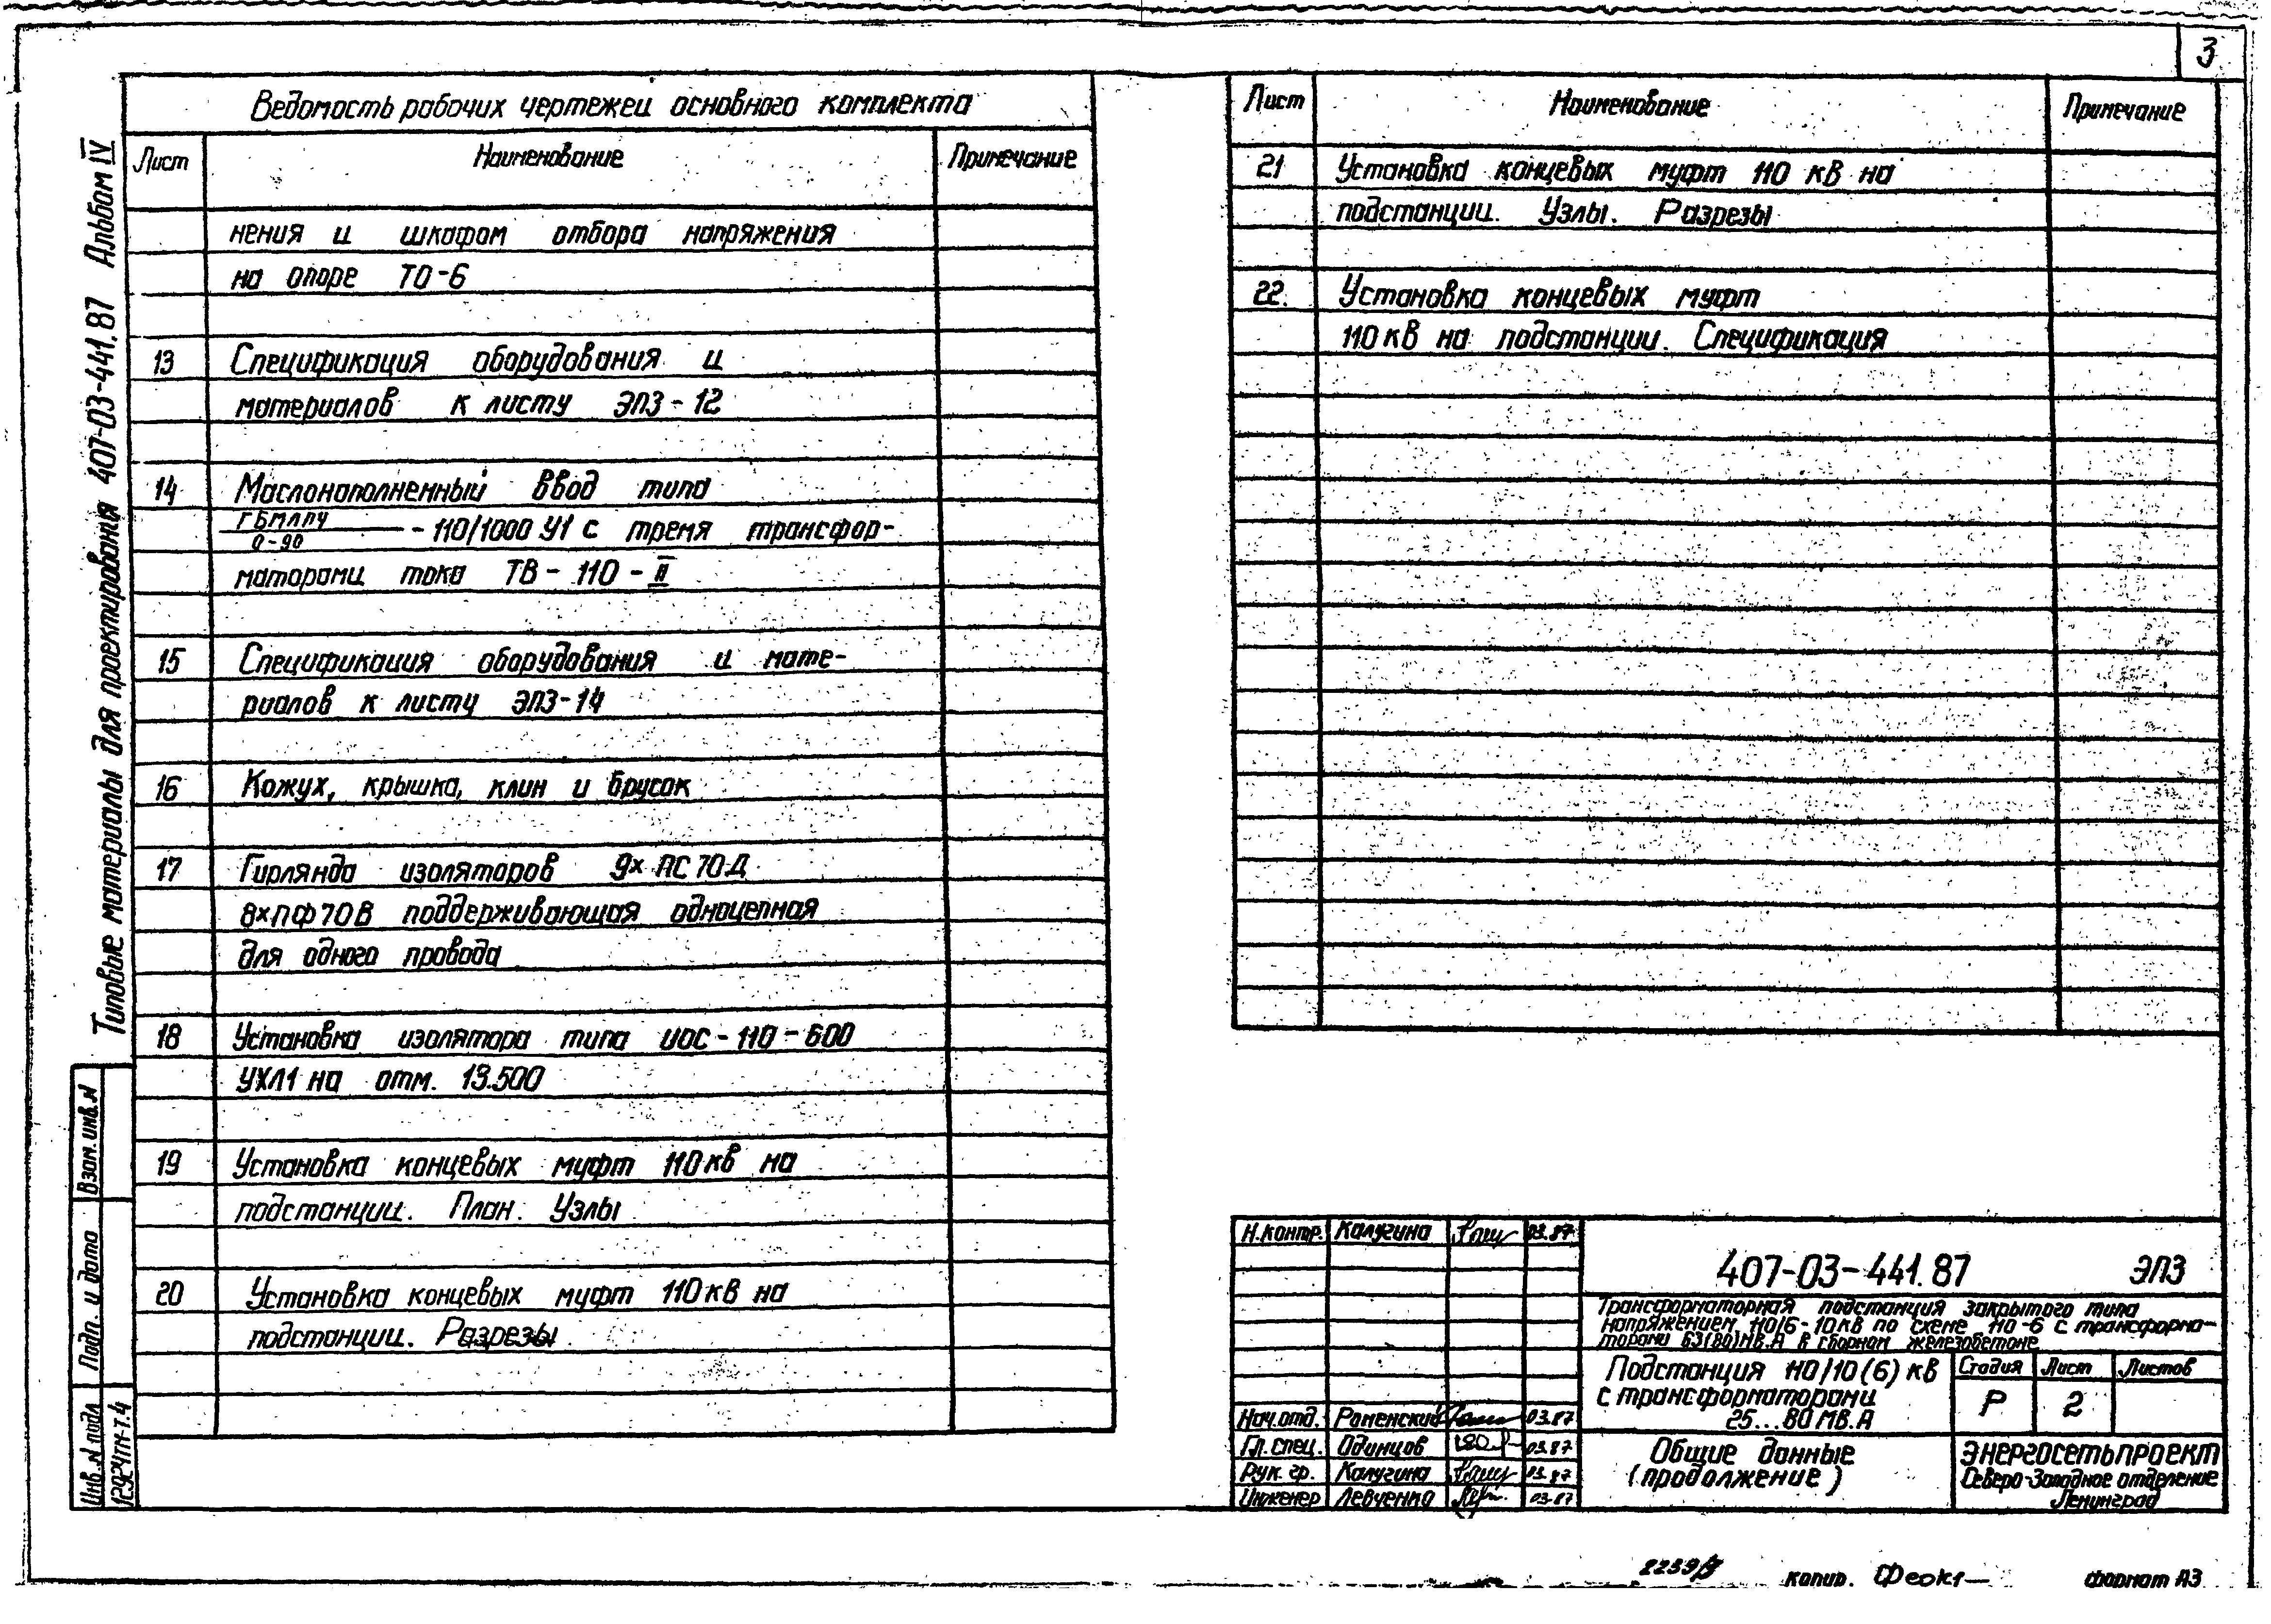 3
Типовые материалы для проектирования 407-03-441.87 Альбом IV
Ведомость рабочих чертежей основного комплекта
Лист Наименование Примечание
нения и шкафом отбора напряжения
на опоре ТО-6
13 Спецификация оборудования и
материалов к листу ЭП3-12
14 Маслонаполненный ввод типа
ГБМЛПУ
0-90
-110/1000 У1 с тремя трансфор-
маторами тока ТВ-110-II
15 Спецификация оборудования и мате-
риалов к листу ЭП3-14
16 Кожух, крышка, клин и брусок
17 Гирлянда изоляторов 9×ПС70Д
8×ПФ70В поддерживающая одноцепная
для одного провода
18 Установка изолятора типа ИОС-110-600
УХЛ1 на отм. 13.500
19 Установка концевых муфт 110кВ на
подстанции. План. Узлы
20 Установка концевых муфт 110кВ на
подстанции. Разрезы
Лист Наименование Примечание
21 Установка концевых муфт 110 кВ на
подстанции. Узлы. Разрезы
22. Установка концевых муфт
110кВ на подстанции. Спецификация
Взам. инв. №
Подп. и дата
Инв. № подл.
12924тм-т.4
Н.контр. Калугина 03.87
Нач.отд. Раменский 03.87
Гл. спец. Одинцов 03.87
Рук. гр. Калугина 03.87
Инженер Левченко 03.87
407-03-441.87 ЭП3
Трансформаторная подстанция закрытого типа
напряжением 110/6-10кВ по схеме 110-6 с трансформа-
торами 63(80)МВ.А в сборном железобетоне
Подстанция 110/10(6) кВ
с трансформаторами
25...80 МВ.А
Стадия Лист Листов
Р 2
Общие данные
(продолжение)
ЭНЕРГОСЕТЬПРОЕКТ
Северо-Западное отделение
Ленинград
копир. Феокт
формат А3